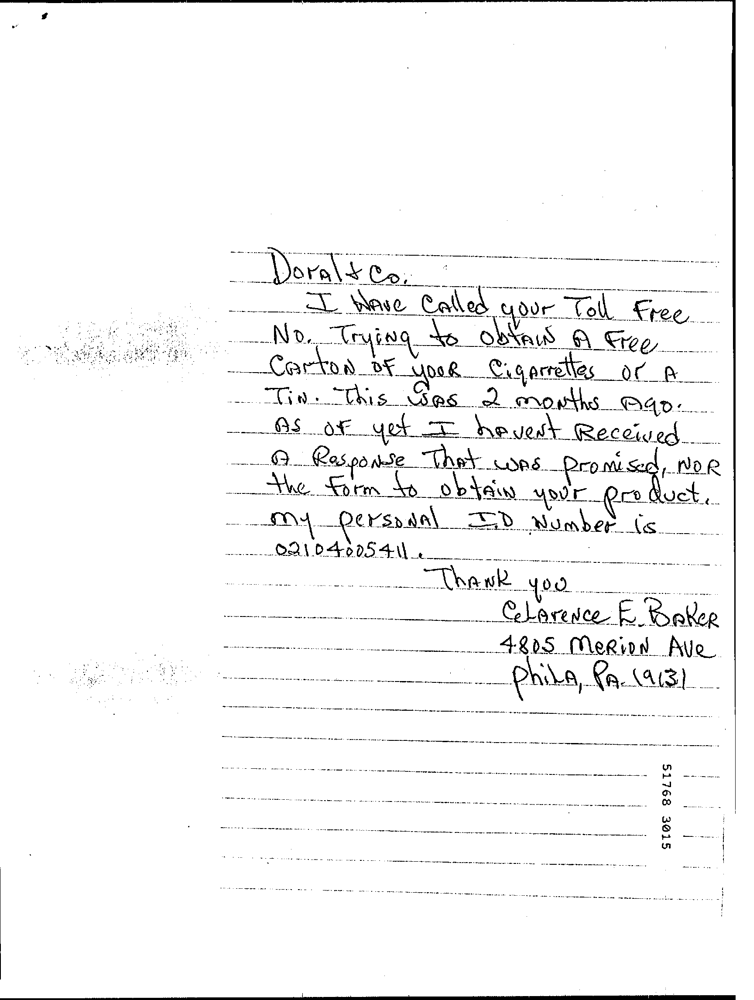 Doral & Co.
I Have Called your Toll Free
No. Trying to obtain A Free
Carton of your Cigarrettes or A
Tin. This was 2 months Ago.
As of yet I havent Received
A Response That was promised, NOR
the form to obtain your product.
my personal ID Number is
02104005411.
Thank you
Clarence E. Baker
4805 Merion Ave
Phila, PA. 19131
51768 3015